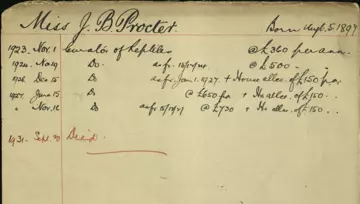 Miss J. B. Procter. Born Aug. 5. 1897
1923. Nov. 1 Curator of Reptiles @ £360 per ann.
1924. Nov. Do. as fr. @ £500 -
1926. Dec. 15 Do as fr. Jan. 1. 1927. + House alloc. of £150 p.a.
1927. June 15 Do @ £650 pa + Ho alloc. of £150 ..
" Nov. 16 Do as fr. @ £730 + Ho alloc. of £150 ..
1931. Sept. 20 Died.